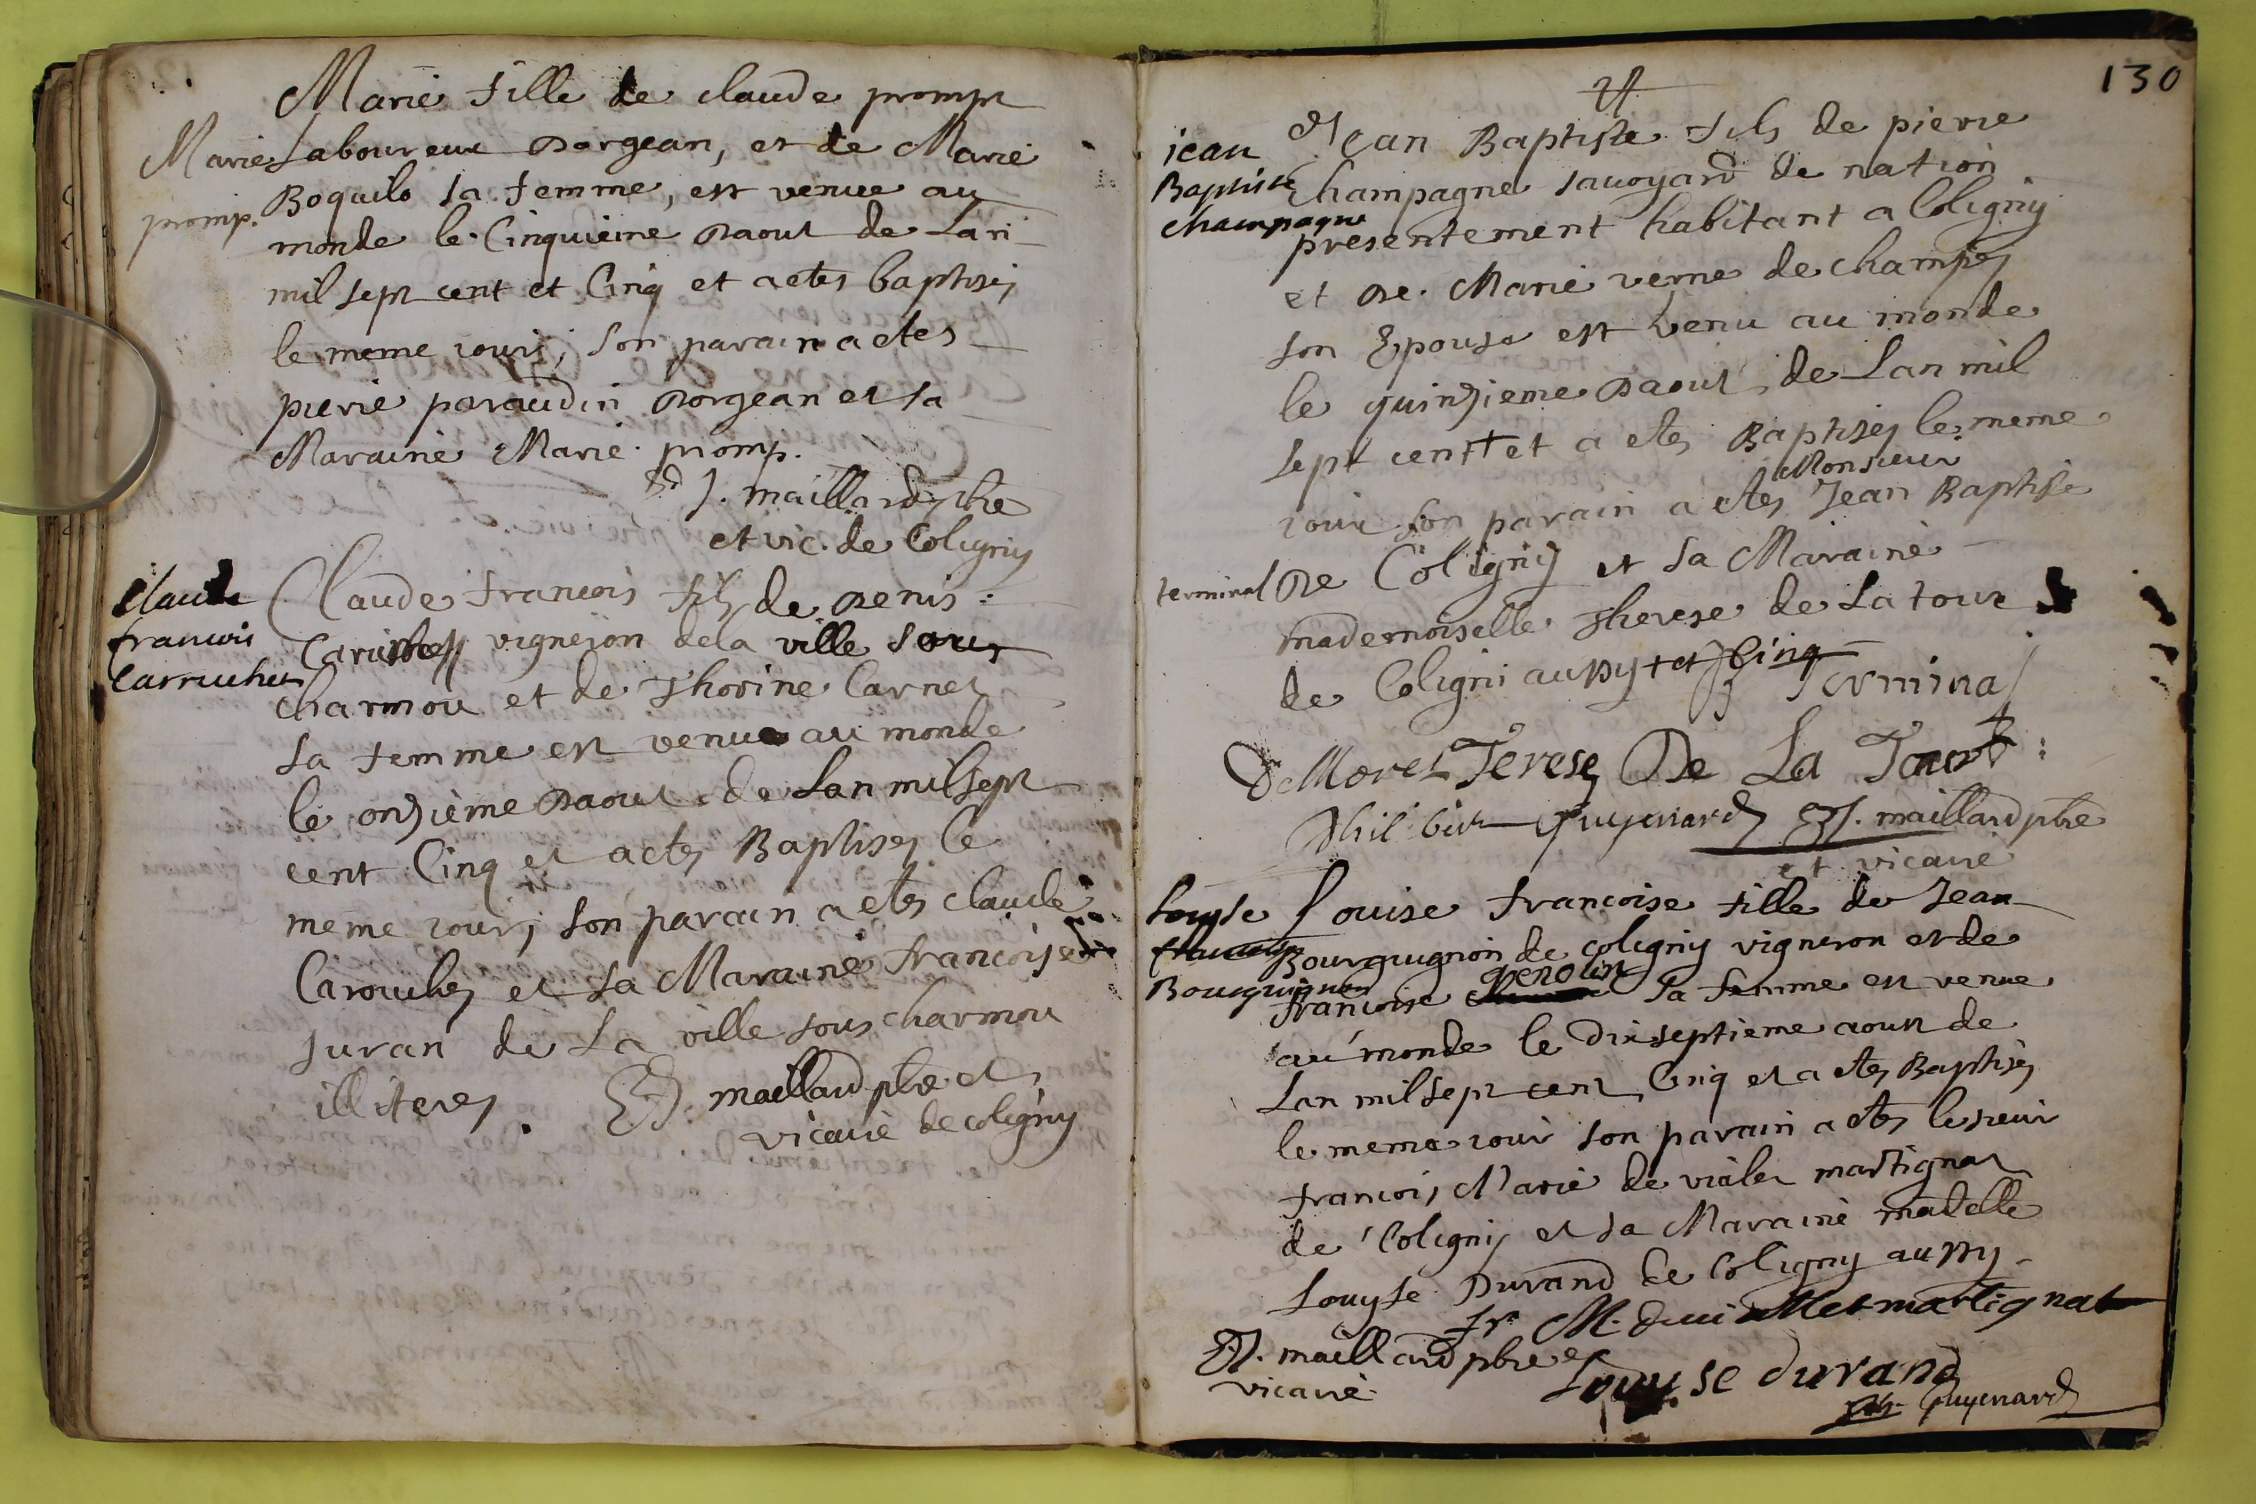 Marie fille de claude prompt
Marie
Laboureur Dorgean, et de Marie
promp.
Boquilo sa femme, est venue au
monde le Cinquieme Daout de Lan
mil sept cent et Cinq et a etes baptisés
le meme jour, son parain a etes
pierre paraudin Dorgean et sa
Maraine Marie promp.
J. maillard pbre
et vic. de Coligny
Claude
francois
Carruches
Claude francois fils de Denis
vigneron de la ville sous
charmou et de Thorine Carnet
sa femme est venu au monde
le onzieme Daout de Lan mil sept
cent Cinq et a etes Baptises le
meme jour, son parain a etes claude
Carouches et sa Maraine francoise
Juran de La ville sous charmou
illiteres. maillard pbre et
vicaire de coligny
130
jean
Baptiste
champagne
Jean Baptiste fils de pierre
champagne savoyard de nation
presentement habitant a Coligny
et De Marie verne de champs
son Epouse est venu au monde
le quinzieme Daout de Lan mil
sept cent + et a etes Baptises le meme
Monsieur
jour son parain a etes Jean Baptiste
terminal De Coligny et sa Maraine
mademoiselle Therese de La tour
de Coligni aussy + et Cinq Terminal
D Moret Terese De La Tour
Philibert Guyenard J. maillard pbre
et vicaire
Louyse
francoise
Bourguignon
Louise francoise fille de Jean
Bourguignon de coligny vigneron et de
francoise perolin sa femme est venue
au monde le Dixseptieme aoust de
Lan mil sept cent Cinq et a etes Baptisés
le meme jour son parain a etes le sieur
francois Marie de vialet martignat
de Coligny et sa Maraine madelle
Louyse Durand de Coligny aussy
fr M. deviallet martignat
J. maillard pbre et
vicaire
Louyse durand
Guyenard